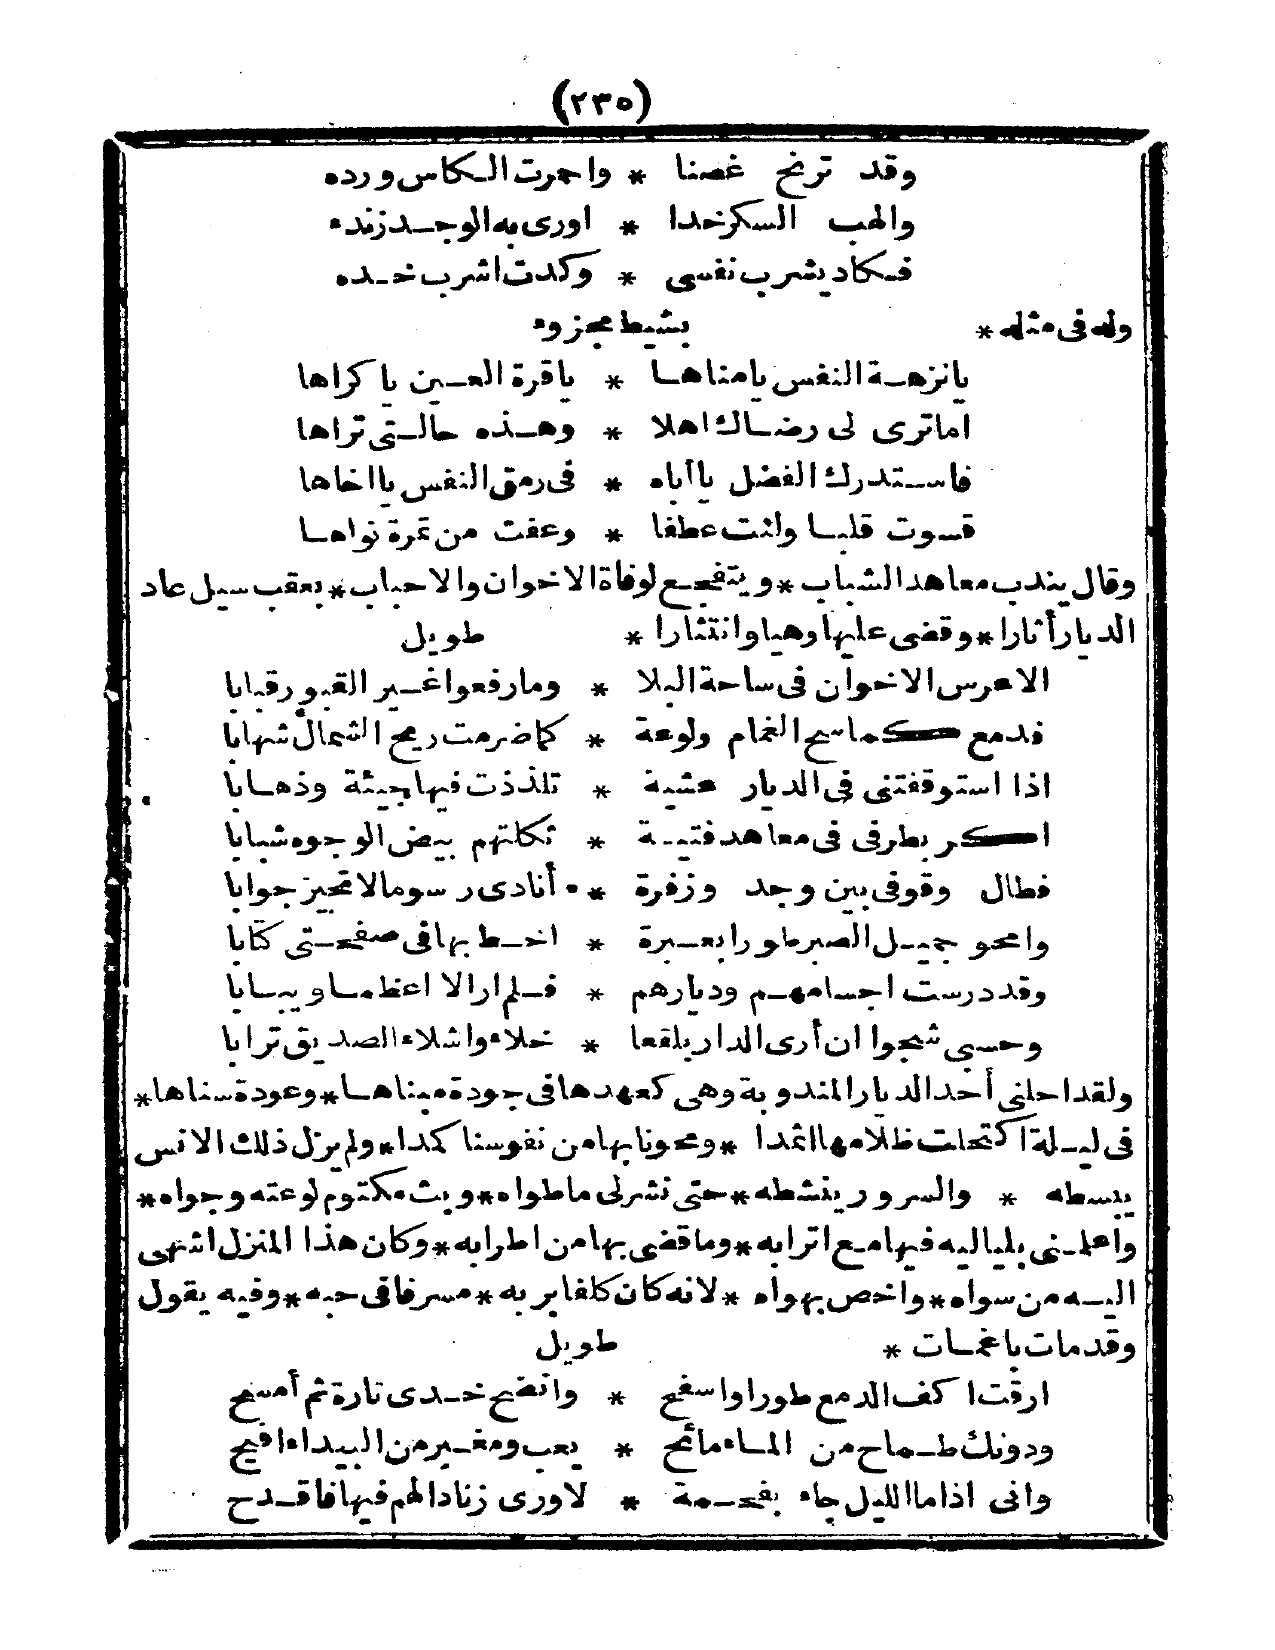 (٢٣٥)
وقد ترنح غصنا * واحمرت الكاس ورده
والهب السكر خدا * اورى به الوجد زنده
فكاد يشرب نفسى * وكدت اشرب خده
وله فى مثله * بشيط مجزوء
يا نزهة النفس يا مناها * يا قرة العين يا كراها
اما ترى لى رضاك اهلا * وهذه حالتى تراها
فاستدرك الفضل يا اباه * فى رمق النفس يا اخاها
قسوت قلبا ولنت عطفا * وعفت من تمرة نواها
وقال يندب معاهد الشباب * ويتفجع لوفاة الاخوان والاحباب * بعقب سيل عاد
الديار أثارا * وقضى عليها وهيا وانتثارا * طويل
الا عرس الاخوان فى ساحة البلا * وما رفعوا غير القبور قبابا
فدمع كما سح الغمام ولوعة * كما ضرمت ريح الشمال شهابا
اذا استوقفتنى فى الديار عشية * تلذذت فيها جيئة وذهابا
اكر بطرفى فى معاهد فتية * ثكلتهم بيض الوجوه شبابا
فطال وقوفى بين وجد وزفرة * أنادى رسوما لا تحيز جوابا
وامحو جميل الصبر طورا بعبرة * اخط بها فى صفحتى كتابا
وقد درست اجسامهم وديارهم * فلم ار الا اعظما ويبابا
وحسبى شجوا ان أرى الدار بلقعا * خلاء واشلاء الصديق ترابا
ولقد احلنى أحد الديار المندوبة وهى كعهدها فى جودة مبناها * وعودة سناها *
فى ليلة اكتحلت ظلامها اثمدا * ومحونا بها من نفوسنا كمدا * ولم يزل ذلك الانس
يبسطه * والسرور ينشطه * حتى نشر لى ما طواه * وبث مكتوم لوعته وجواه *
واعلمنى بلياليه فيها مع اترابه * وما قضى بها من اطرابه * وكان هذا المنزل اشهى
اليه من سواه * واخص بهواه * لانه كان كلفا بربه * مسرفا فى حبه * وفيه يقول
وقد مات باغمات * طويل
ارقت اكف الدمع طورا واسفح * وانضح خدى تارة ثم أمسح
ودونك طماح من الماء مائح * يعب ومغبر من البيداء افيح
وانى اذا ما الليل جاء بفحمة * لاورى زناد الهم فيها فاقدح